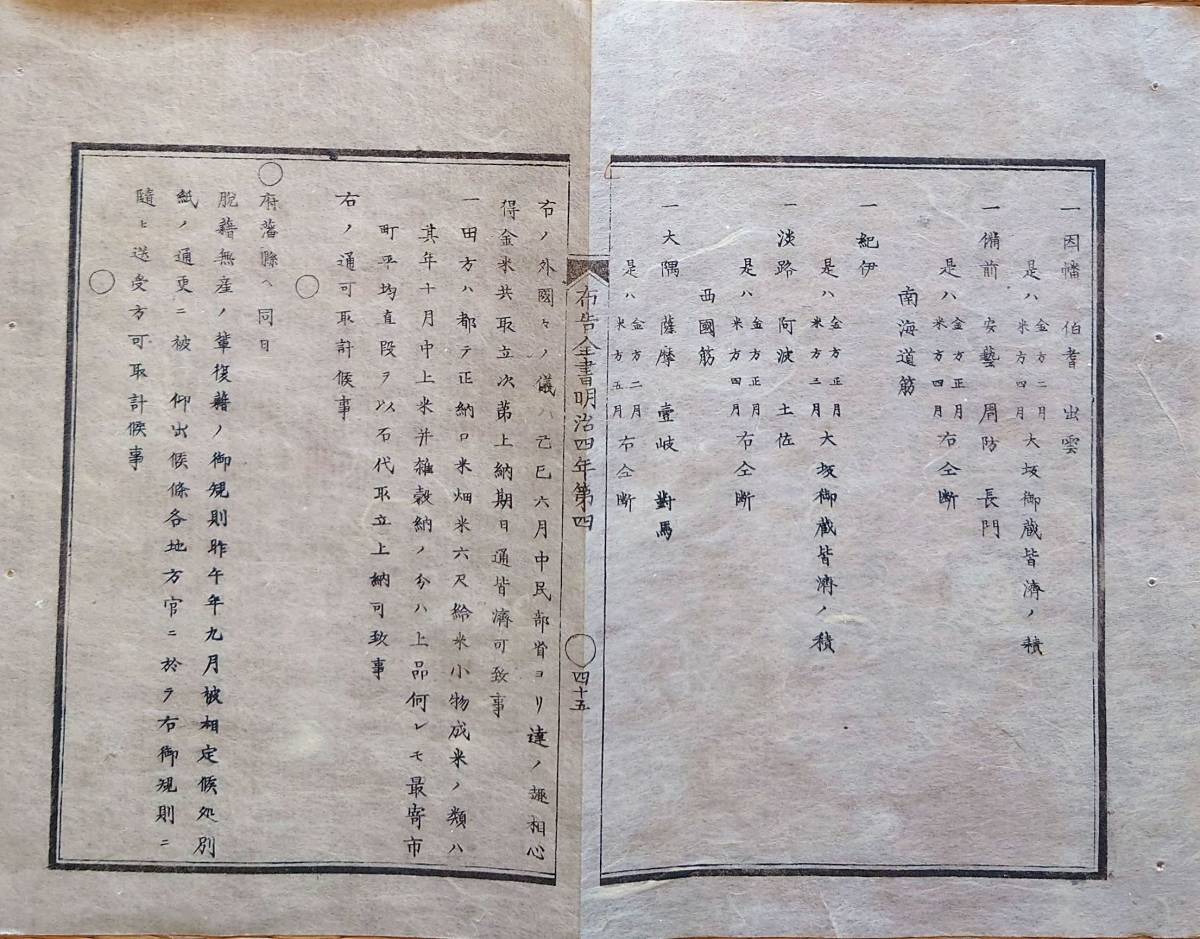 一因幡　伯耆　出雲
是ハ金方二月米方四月大坂御蔵皆濟ノ積
一備前　安藝　周防　長門
是ハ金方正月米方四月右仝断
南海道筋
一紀伊
是ハ金方正月米方三月大坂御蔵皆濟ノ積
一淡路　阿波　土佐
是ハ金方正月米方四月右仝断
西國筋
一大隅　薩摩　壹岐　對馬
是ハ金方二月米方五月右仝断
布告全書明治四年第四　○　四十五
右ノ外國々ノ儀ハ己巳六月中民部省ヨリ達ノ趣相心
得金米共取立次苐上納期日通皆濟可致事
一田方ハ都テ正納口米畑米六尺給米小物成米ノ類ハ
其年十月中上米并雑穀納ノ分ハ上品何レモ最寄市
町平均直段ヲ以石代取立上納可致事
右ノ通可取計候事
○
○府藩縣ヘ同日
脱籍無産ノ輩復籍ノ御規則昨午年九月被相定候処別
紙ノ通更ニ被　仰出候條各地方官ニ於テ右御規則ニ
隨ヒ送受方可取計候事
○